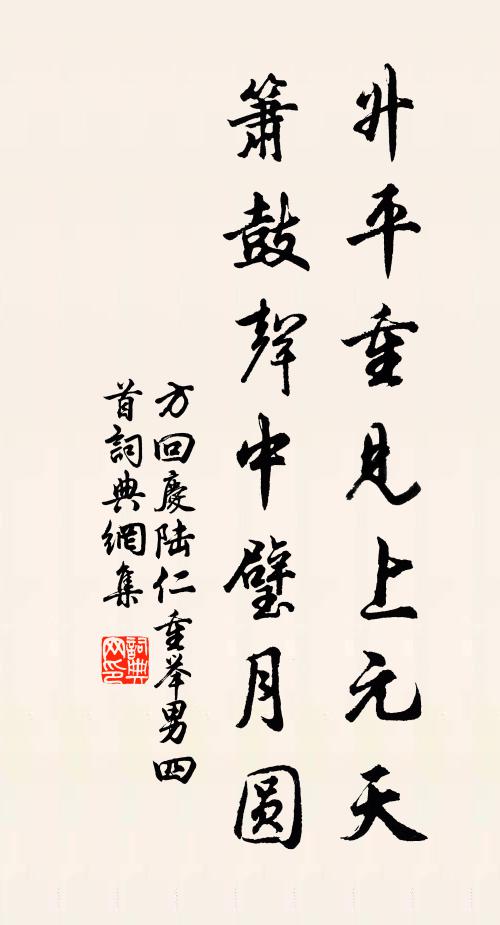 升平重見上元天
簫鼓聲中璧月圆
方回慶陸仁重举男四
首詞典網集
詞典網印